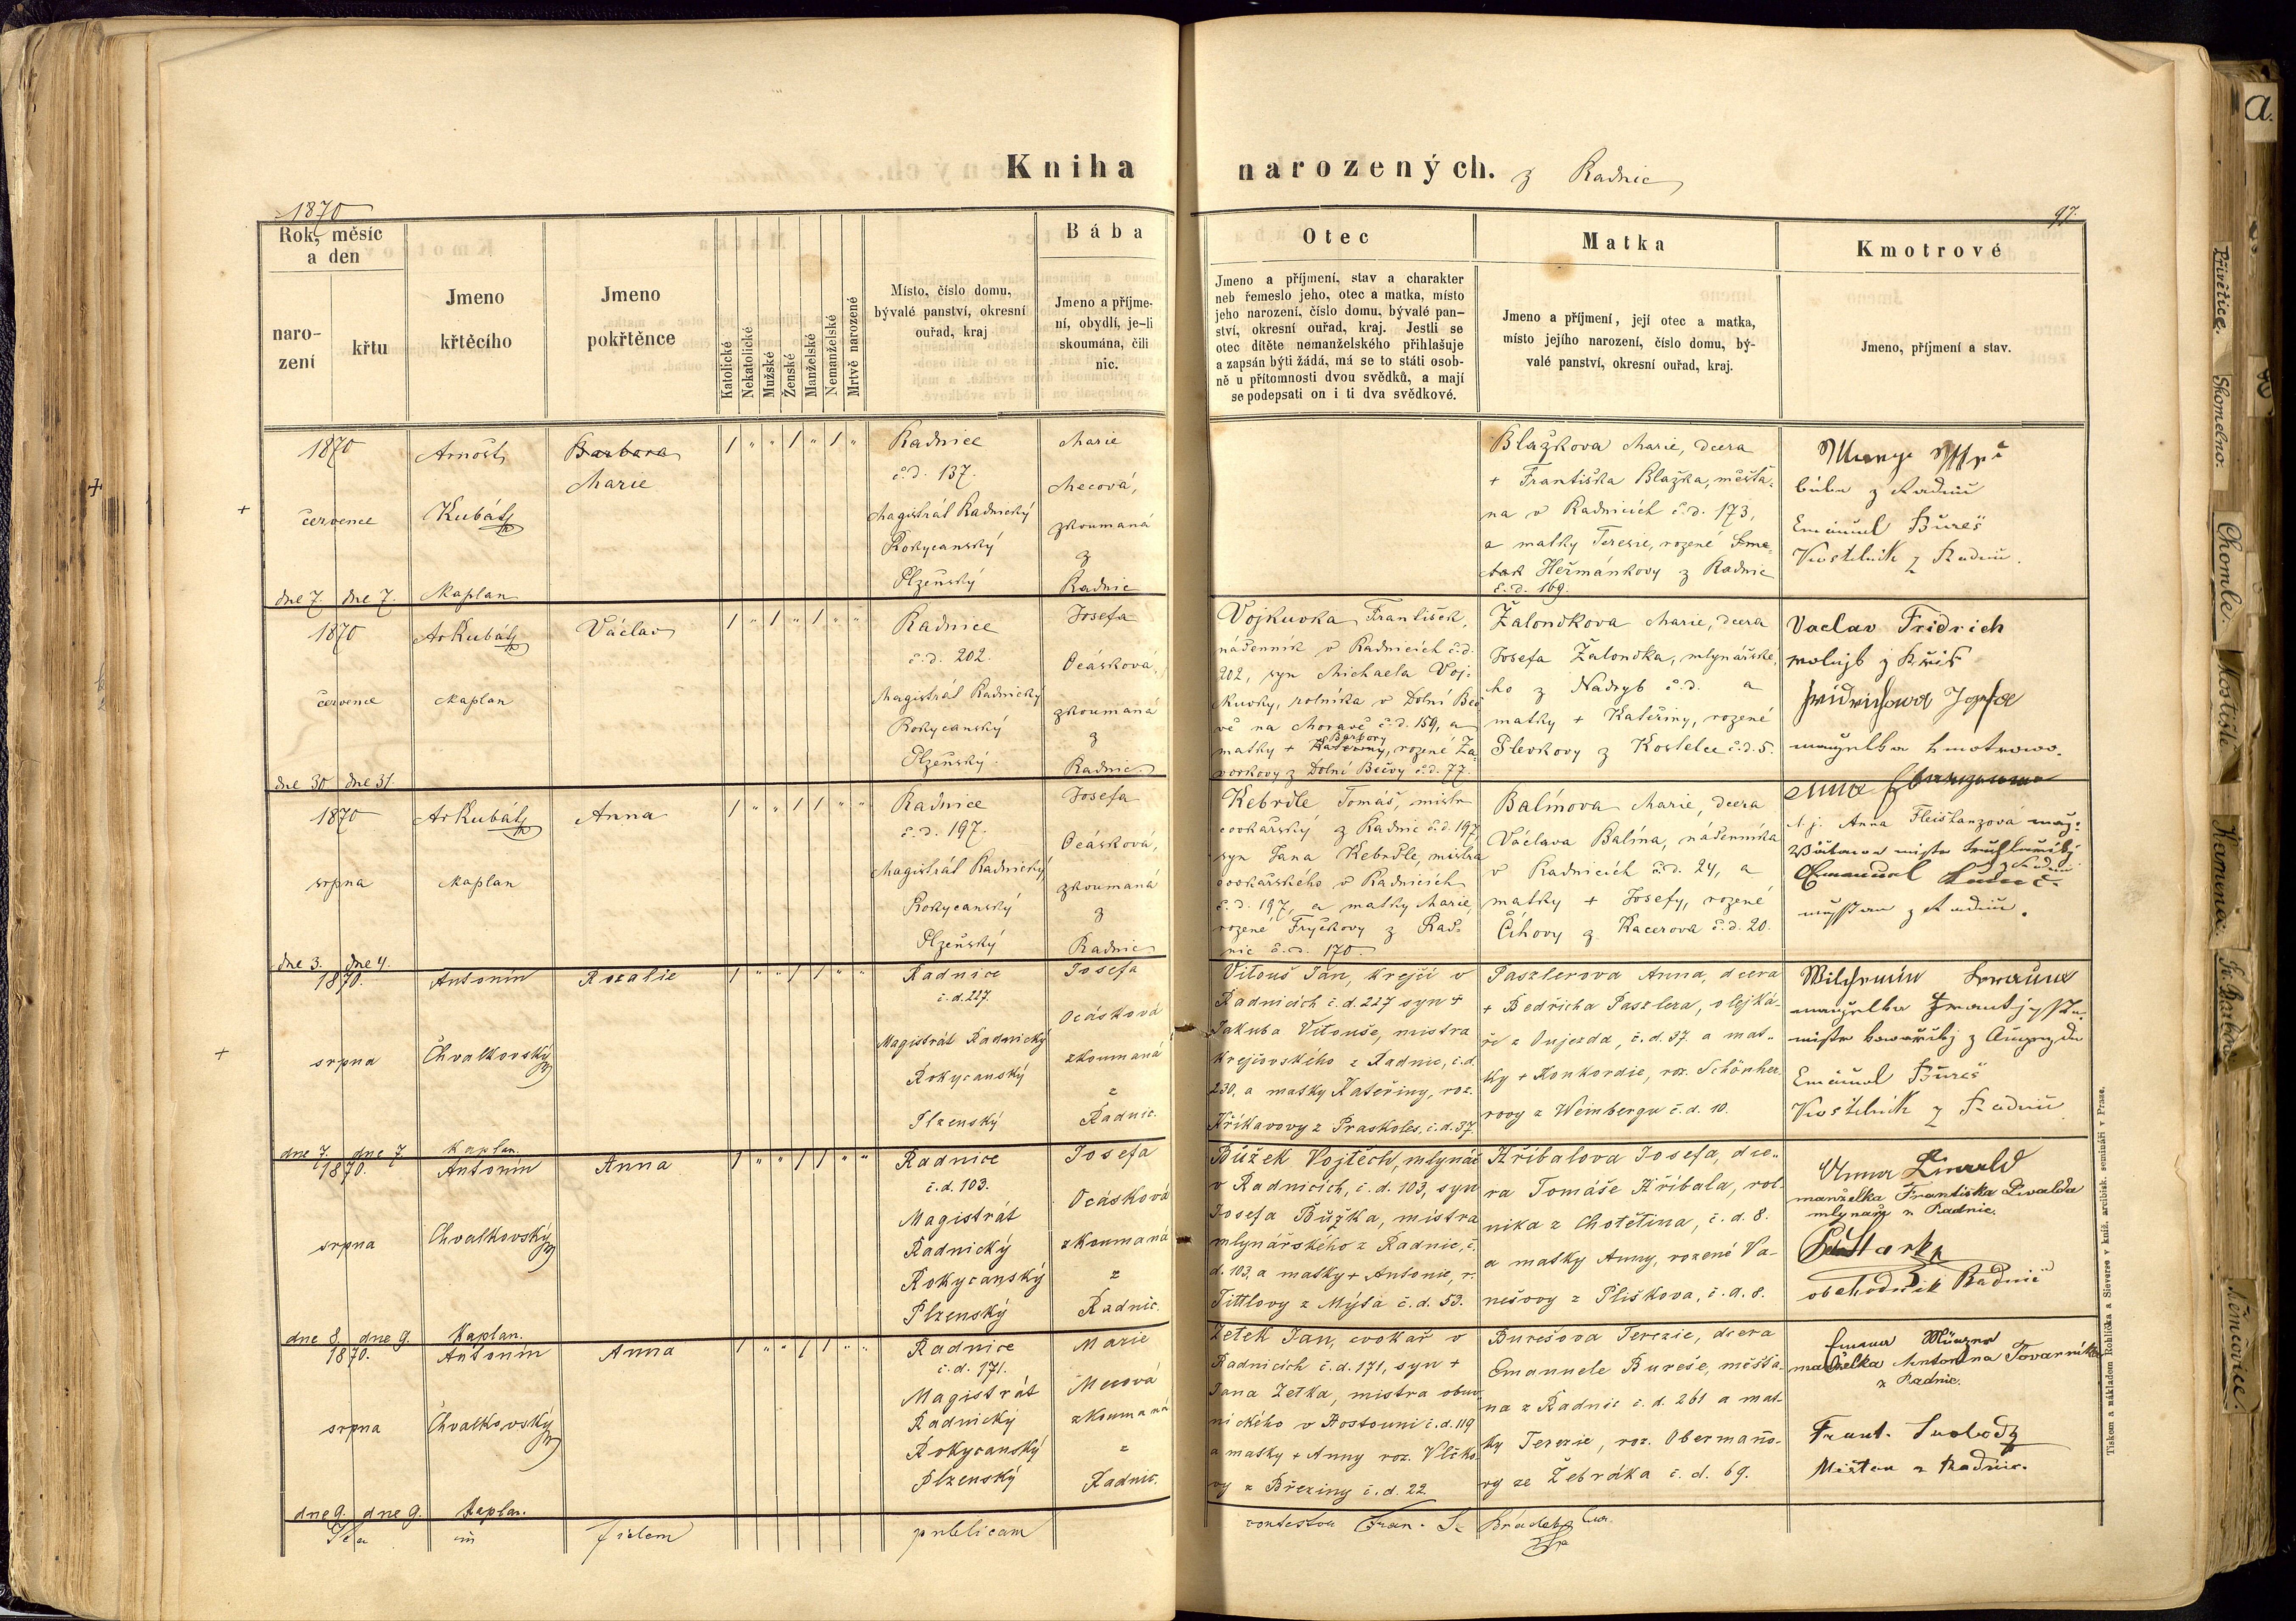 Kniha narozených. z Radnic
1870
97.
Rok, měsíc
a den
naro-
zení
křtu
Jmeno
křtěcího
Jmeno
pokřtěnce
Katolické
Nekatolické
Mužské
Ženské
Manželské
Nemanželské
Mrtvě narozené
Místo, číslo domu,
bývalé panství, okresní
ouřad, kraj
Bába
Jmeno a příjme-
ní, obydlí, je-li
skoumána, čili
nic.
Otec
Jmeno a příjmení, stav a charakter
neb řemeslo jeho, otec a matka, místo
jeho narození, číslo domu, bývalé pan-
ství, okresní ouřad, kraj. Jestli se
otec dítěte nemanželského přihlašuje
a zapsán býti žádá, má se to státi osob-
ně u přítomnosti dvou svědků, a mají
se podepsati on i ti dva svědkové.
Matka
Jmeno a příjmení, její otec a matka,
místo jejího narození, číslo domu, bý-
valé panství, okresní ouřad, kraj.
Kmotrové
Jmeno, příjmení a stav.
1870
července
dne 7. dne 7.
Arnošt
Kubát
Kaplan
Barbara
Marie
1 " " 1 " 1 "
Radnice
č.d. 137.
Magistrát Radnický
Rokycanský
Plzeňský
Marie
Mecová,
zkoumaná
z
Radnic
Blažkova Marie, dcera
+ Františka Blažka, měšťa-
na v Radnicích č.d. 173,
a matky Terezie, rozené
Heřmánkovy z Radnic
č.d. 169.
bába z Radnic
Emanuel Bureš
Kostelník z Radnic.
1870
července
dne 30 dne 31.
Ar Kubát
Kaplan
Václav
1 " 1 " 1 " "
Radnice
č.d. 202.
Magistrát Radnický
Rokycanský
Plzeňský.
Josefa
Ocásková,
zkoumaná
z
Radnic
Vojkuvka František,
nádenník v Radnicích č.d.
202, syn Michaela Voj-
kuvky, rolníka v Dolní Beč
vě na Moravě č.d. 159, a
Barbory
matky + Kateřiny, rozené Za
vorkovy z Dolní Bečvy č.d. 77.
Žaloudkova Marie, dcera
Josefa Žaloudka, mlynářske-
ho z Nadryb č.d. a
matky + Kateřiny, rozené
Plevkovy z Kostelce č.d. 5.
Vaclav Fridrich
Fridrichowa Josefa
manželka kmotrowa.
1870
srpna
dne 3. dne 4.
Ar Kubát
Kaplan
Anna
1 " " 1 1 " "
Radnice
č.d. 197.
Magistrát Radnický
Rokycanský
Plzeňský
Josefa
Ocásková,
zkoumaná
z
Radnic
Kebrdle Tomáš, mistr
cvokařský z Radnic č.d. 197
syn Jana Kebrdle, mistra
cvokařského v Radnicích
č.d. 197, a matky Marie,
rozené Fryčkovy z Rad-
nic č.d. 170.
Balínova Marie, dcera
Václava Balína, nádenníka
v Radnicích č.d. 24, a
matky + Josefy, rozené
Číhovy z Kacerova č.d. 20.
Anna
t. j. Anna Fleišhanzová
Emanuel
z Radnic.
1870.
srpna
dne 7. dne 7.
Antonín
Chvalkovský
Kaplan.
Rozalie
1 " " 1 1 " "
Radnice
č.d. 227.
Magistrát Radnický
Rokycanský
Plzenský
Josefa
Ocásková
zkoumaná
z
Radnic.
Vitouš Jan, krejčí v
Radnicích č.d. 227 syn +
Jakuba Vitouše, mistra
krejčovského z Radnic, č.d.
230, a matky Kateřiny, roz.
Křikavovy z Praskoles, č.d. 37.
Paszlerova Anna, dcera
+ Bedřicha Paszlera, olejká-
ře z Oujezda, č.d. 37. a mat-
ky + Konkordie, roz. Schönher-
rovy z Weinbergu č.d. 10.
manželka
Emanuel Bureš
Kostelník z Radnic
1870.
srpna
dne 8. dne 9.
Antonín
Chvalkovský
Kaplan.
Anna
1 " " 1 1 " "
Radnice
č.d. 103.
Magistrát
Radnický
Rokycanský
Plzenský
Josefa
Ocásková
zkoumaná
z
Radnic.
Bůžek Vojtěch, mlynář
v Radnicích, č.d. 103, syn
Josefa Bůžka, mistra
mlynářského z Radnic, č.
d. 103, a matky + Antonie, r.
Tittlovy z Mýta č.d. 53.
Hříbalova Josefa, dce-
ra Tomáše Hříbala, rol-
níka z Chotětina, č.d. 8.
a matky Anny, rozené Va-
nešovy z Pliškova, č.d. 8.
Anna Liwald
manželka Františka Livalda
mlynáře z Radnic.
obchodník Radnic
1870.
srpna
dne 9. dne 9.
Antonín
Chvalkovský
Kaplan.
Anna
1 " " 1 1 " "
Radnice
č.d. 171.
Magistrát
Radnický
Rokycanský
Plzenský
Marie
Mecová
zkoumaná
z
Radnic.
Zetek Jan, cvokař v
Radnicích č.d. 171, syn +
Jana Zetka, mistra obuv-
nického v Hostouni č.d. 119
a matky + Anny roz. Vlčko-
vy z Březiny č.d. 22.
Burešova Terezie, dcera
Emanuele Bureše, měšťa-
na z Radnic č.d. 261 a mat-
ky Terezie, roz. Obermano-
vy ze Žebráka č.d. 69.
manželka Antonína Tovarníka
z Radnic.
Frant. Svoboda
Měšťan z Radnic.
Ita in fidem publicam contestor Fran.
Tiskem a nákladem Rohlíčka a Sieverse v kníž. arcibisk. semináři v Praze.
a.
Přívětice.
Skomelno.
Chomle.
Mostiště
Kamenec.
Sv. Barbora
Němčovice.